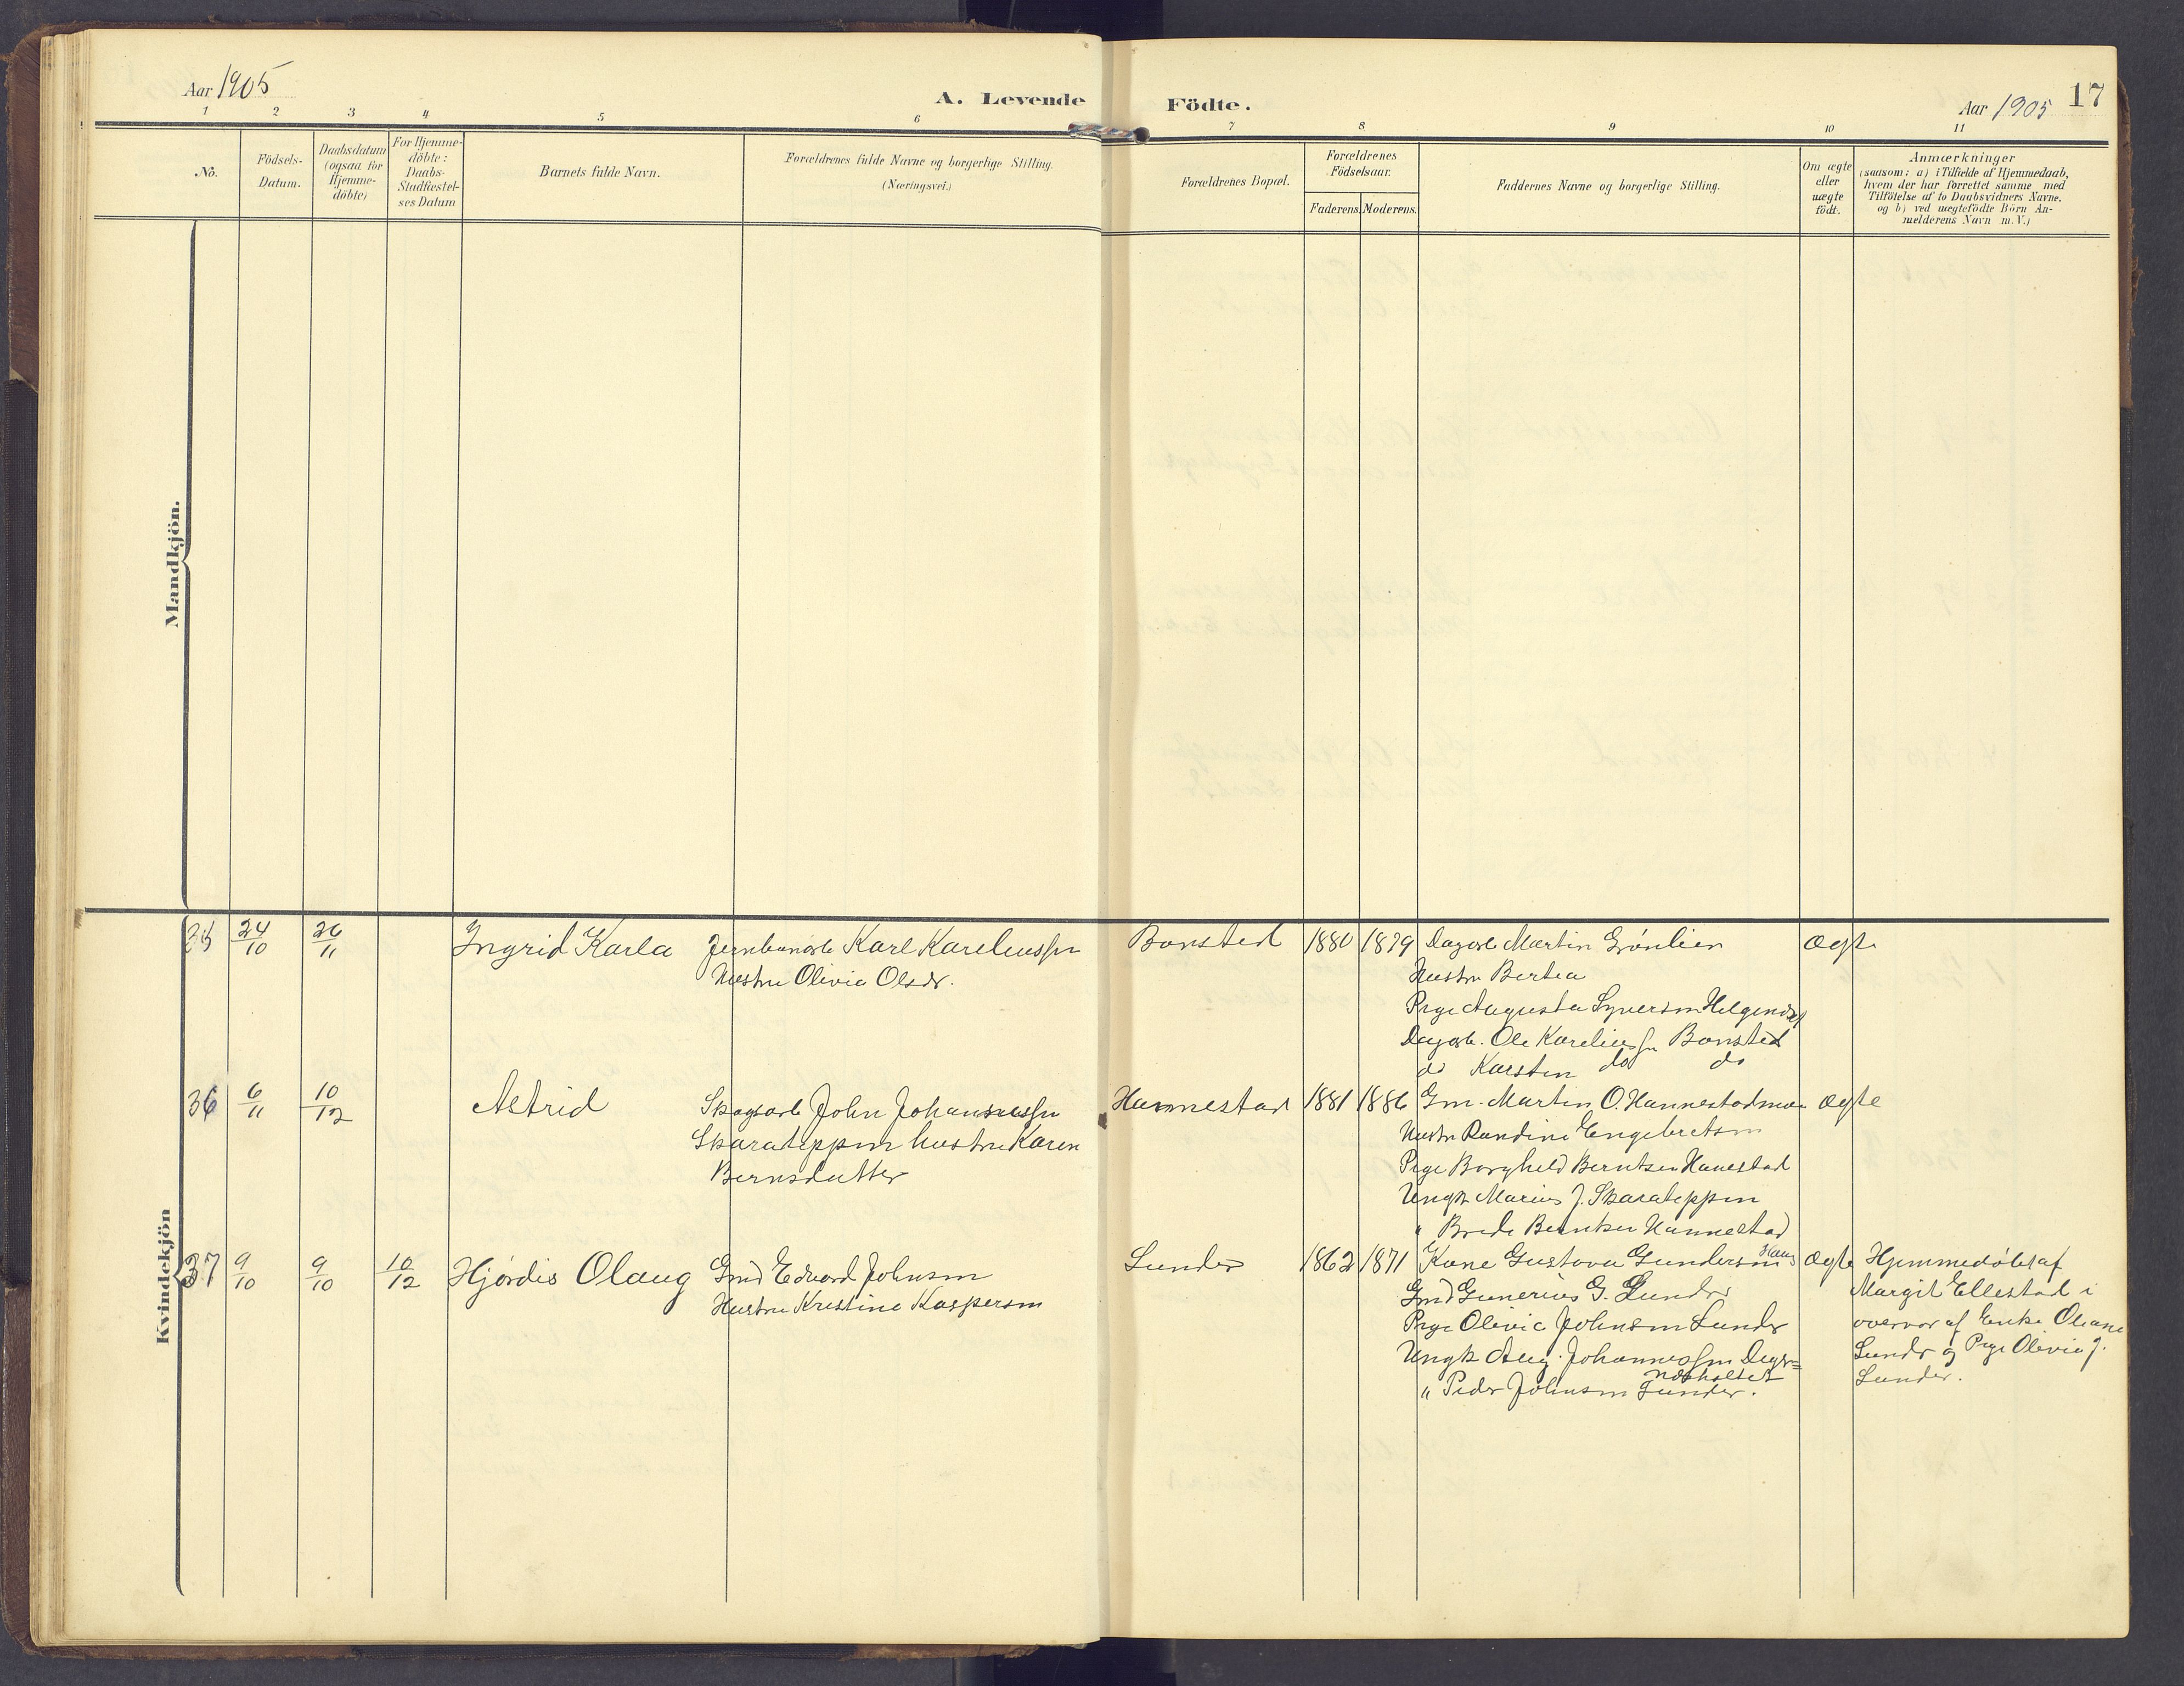 Aar 1905
A. Levende Födte.
Aar 1905
17
1 2 3 4 5 6 7 8 9 10 11
No.
Födsels-
Datum.
Daabsdatum
(ogsaa for
Hjemme-
döbte)
For Hjemme-
döbte:
Daabs-
Stadfæstel-
ses Datum
Barnets fulde Navn.
Forældrenes fulde Navne og borgerlige Stilling.
(Næringsvei.)
Forældrenes Bopæl.
Forældrenes
Födselsaar.
Faderens. Moderens.
Faddernes Navne og borgerlige Stilling.
Om ægte
eller
uægte
födt.
Anmærkninger
(saasom: a) i Tilfælde af Hjemmedaab,
hvem der har forrettet samme med
Tilföielse af to Daabsvidners Navne.
og b) ved uægtefödte Börn An-
melderens Navn m. V.)
Mandkjön.
Kvindekjön
35 24/10 26/11 Ingrid Karla
Jernbanarb Karl Kareliussen
Hustru Olivia Olsdr.
Bonsted 1880 1879
Dagarb Martin Grønlien
Hustru Bertea
Pige Augusta Syversen
Dagarb. Ole Kareliussen Bonsted
do Karsten do do
Ægte
36 6/11 10/12 Astrid
Skogsarb John Johannessen
Skarateppen hustru Karen
Bernsdatter
Hannestad 1881 1886
Gm. Martin O. Hannestadmoen
Hustru Randine Engebretsen
Pige Borghild Berntsen Hanestad
Ungk. Marius J. Skarateppen
" Brede Berntsen Hannestad
Ægte
37 9/10 9/10 10/12 Hjørdis Olaug
Gmd Edvard Johnsen
Hustru Kristine Kaspersen
Sunder 1862 1871
Kone Gustava Gundersen
Gmd Gunerius G. Sunder
Pige Olivia Johnsen Sunder
Ungk Aug. Johannessen
" Peder Johnsen Sunder.
Ægte
Hjemmedøbt af
Margit Ellestad i
overvær af Enke Oliane
Sunder og Pige Olivia J.
Sunder.